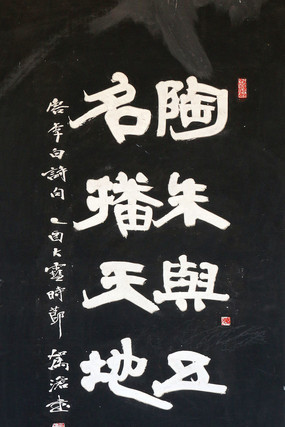 陶朱與五
名播天地
唐李白詩句 乙酉大靈時鄭